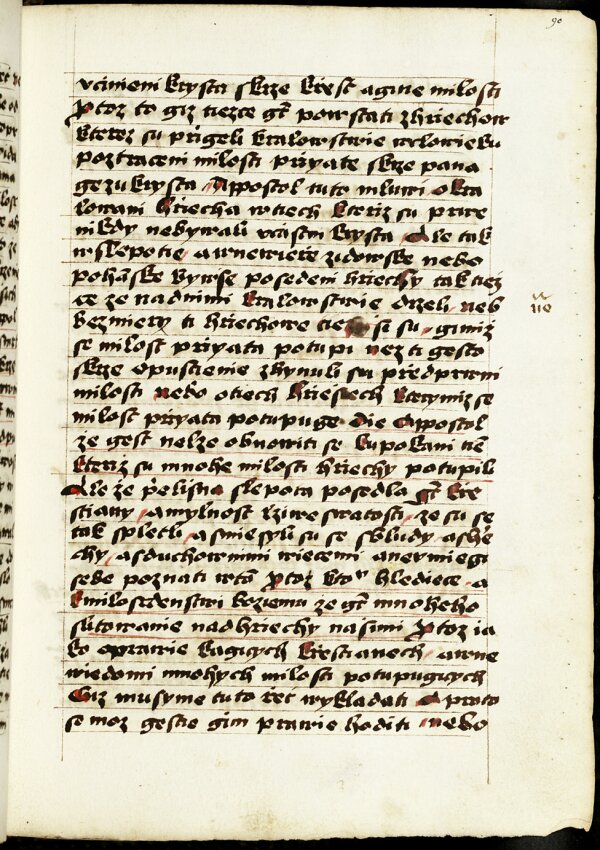 90
vcinieni krysta skrze krest a gine milosti
Protoz to giz tiezce gt powstati z hriechow
kteroz su prigeli kralowstwie wlowieku
poztraceni milosti priyate skrze pana
gezu krysta Appostol tuto mluwi o kra
lowani hriecha w tiech kteriz su prwe
nikdy nebywali vcastni krysta Ale tak
w slepotie a w newierze zidowske nebo
pohanske bywse posedeni hriechy tak tiez
ce ze nad nimi kralowstwie drzeli neb
bez miery ti hriechowe su gimiz
se milost priyata potupi nez ti gesto
skrze opustienie zhynuli su pred prwni
milosti nebo o tiech hriesiech kterymiz se
milost priyata potupuge die Appostol
ze gest nelze obnowiti se ku pokani tiem
kteriz su mnohe milosti hriechy potupili
Ale ze prelisna slepota posedla gt krie
stiany a mylnost lziwe swatosti ze su se
tak spletli a smiesyli su se s bludy a s hrie
chy a s duchownimi wiecemi a newmiegi
sebe poznati w tom Protoz ktoz hlediece a
k milosrdenstwi boziemu ze gt mnoheho
slitowanie nad hriechy nasimi Protoz ia
ko oprawie kagicych krestianech a w ne
wiedomi mnohych milosti potupugicych
Giz musyme tuto rec wykladati A proto
se moz gestie gim prawie hoditi nebo